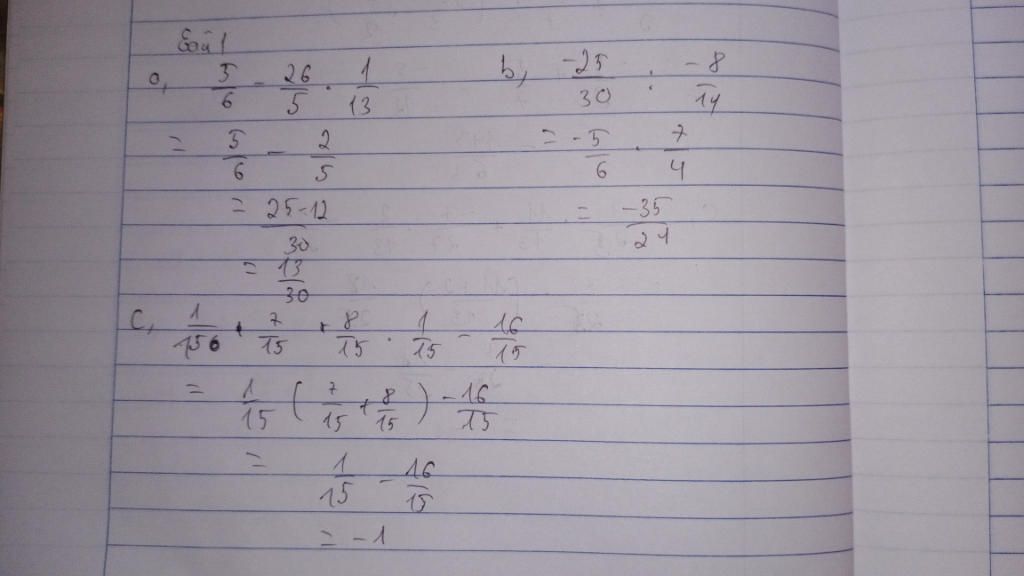 Bài 1
a, 5/6 - 26/5 . 1/13
= 5/6 - 2/5
= 25-12/30
= 13/30
b, -25/30 : -8/14
= -5/6 . 7/4
= -35/24
c, 1/15 . 7/15 + 8/15 . 1/15 - 16/15
= 1/15 ( 7/15 + 8/15 ) - 16/15
= 1/15 - 16/15
= -1